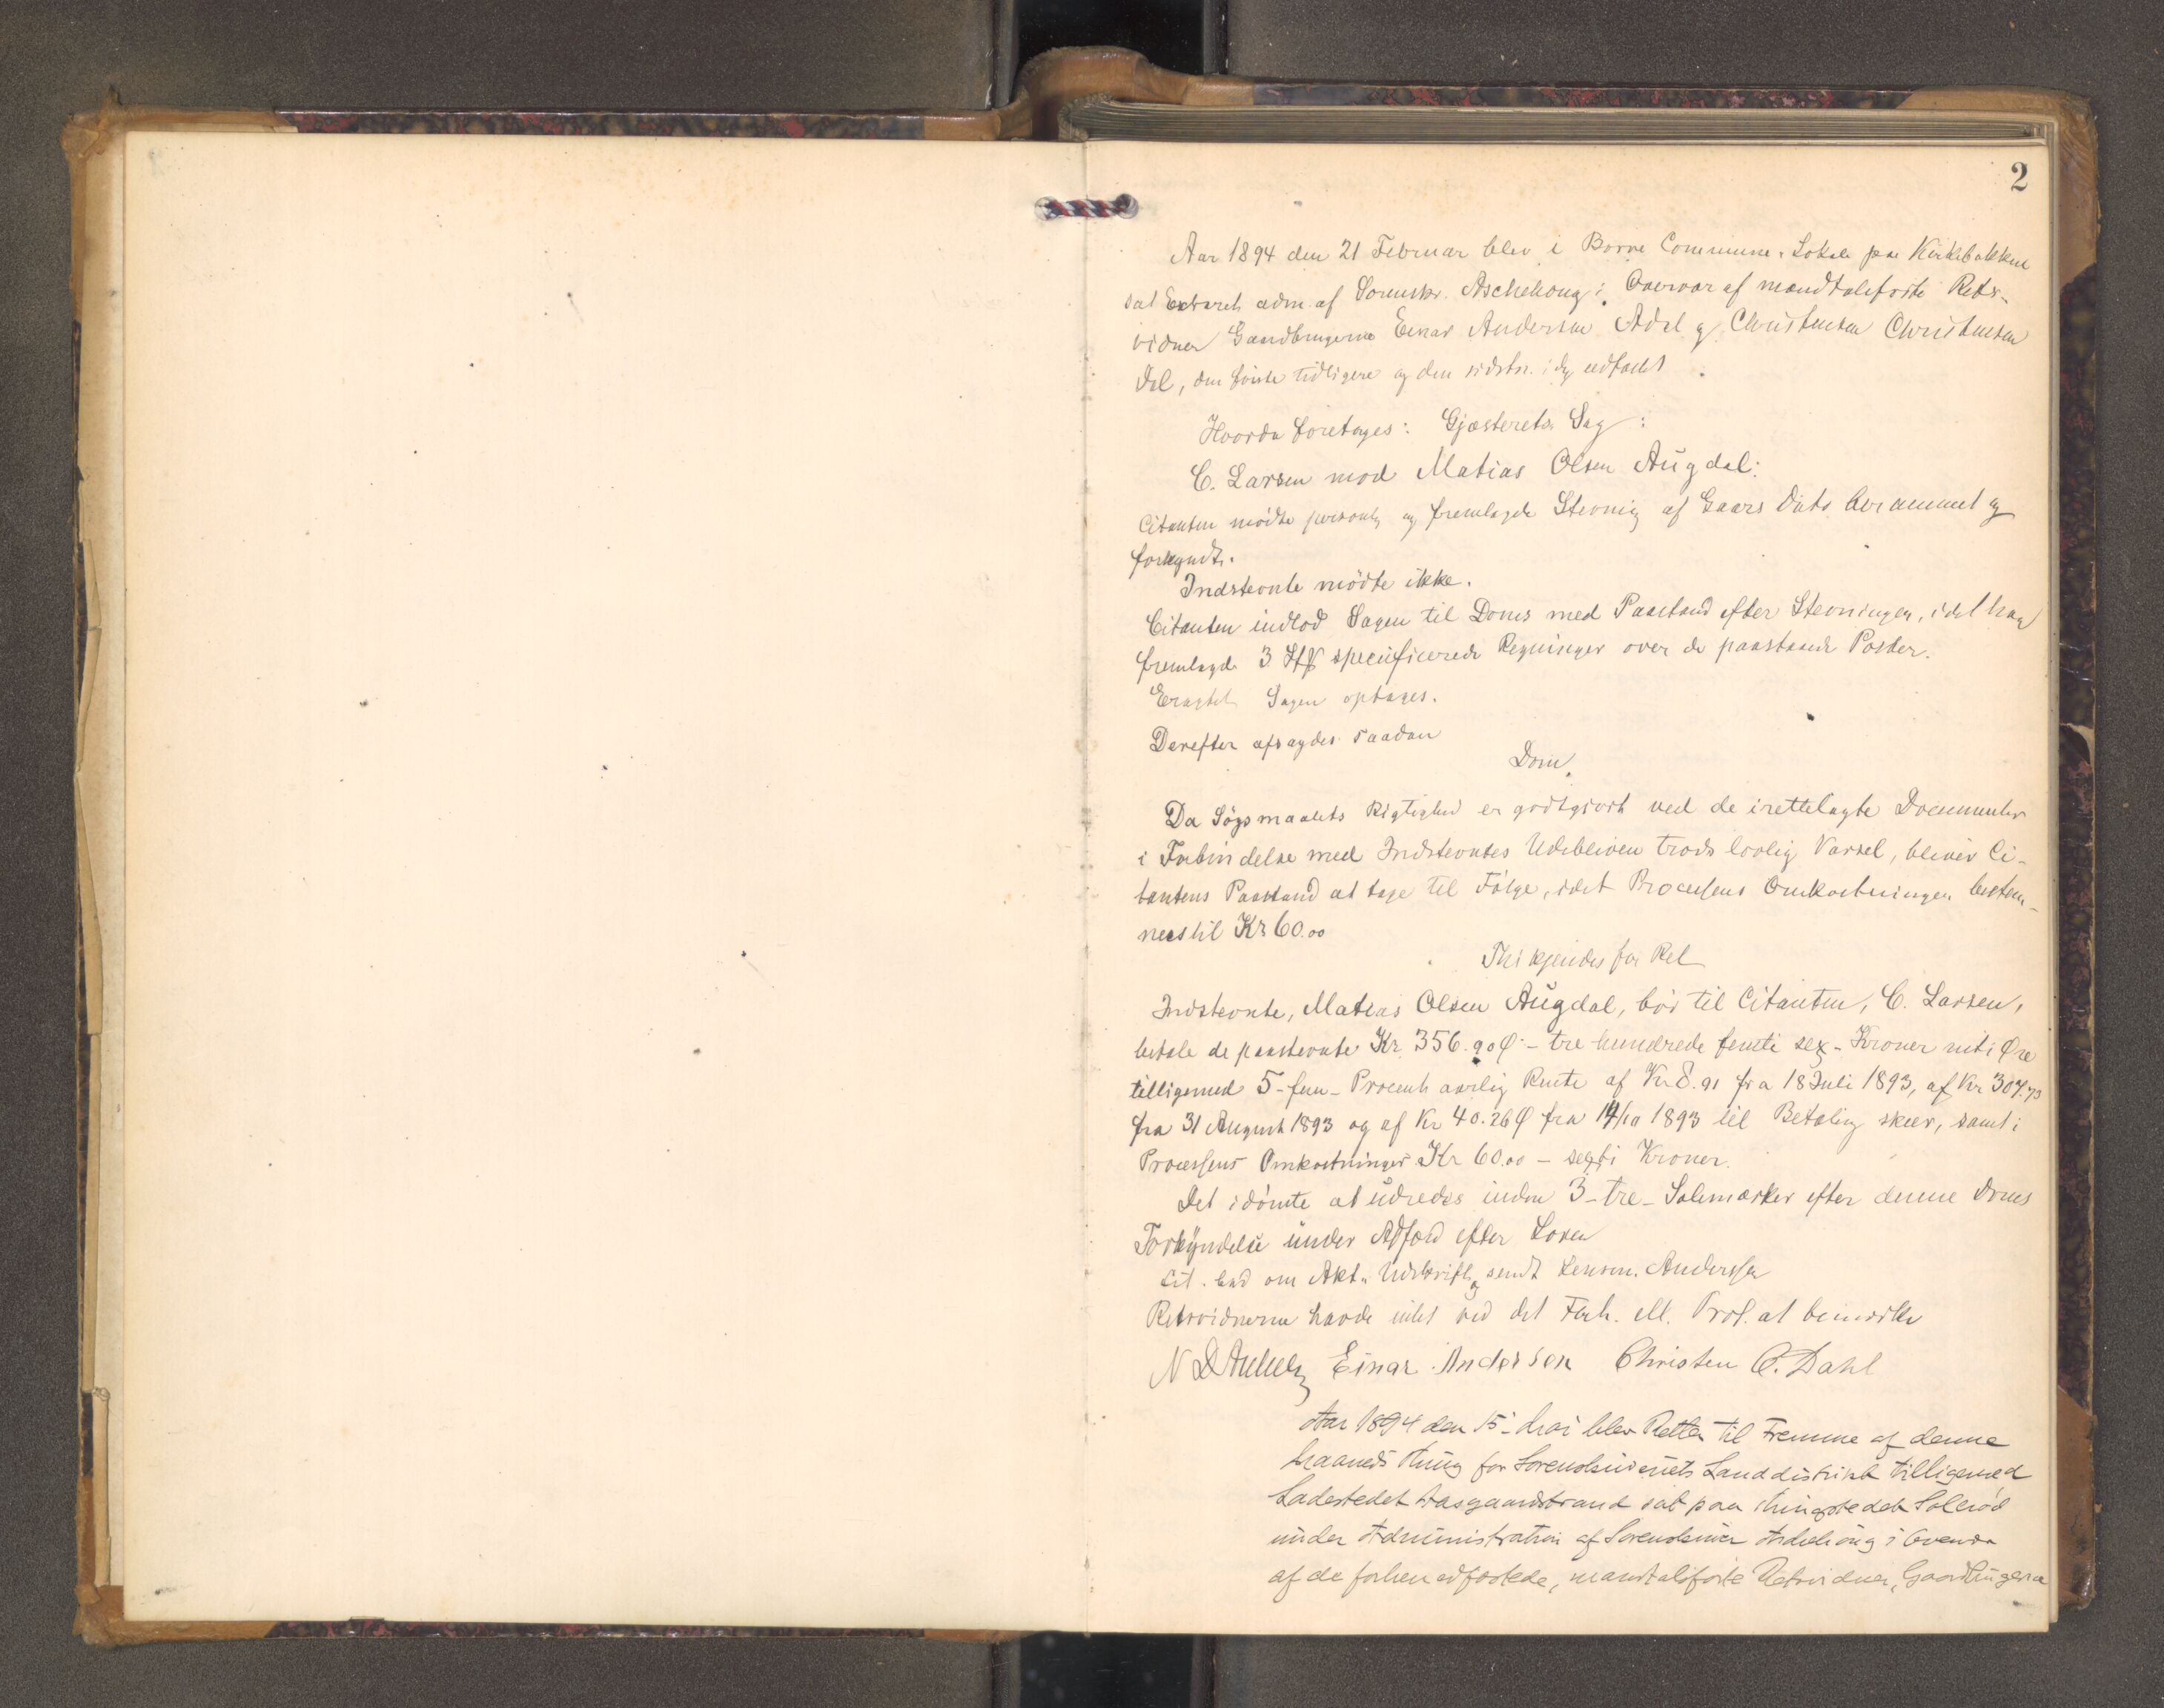 2
Aar 1894 den 21 Februar blev i Borre Communes Lokale paa Kirkebakken
sat Extraret adm. af Sorenskr. Aschehoug i Overvær af mandtalsførte Rets-
vidner Gaardbrugerne Einar Andersen Adal og Christensen Christensen
Dal, den første tidligere og den sidstn. i dag edfæstet
Hvorda foretages: Gjæsterets Sag:
C. Larsen mod Matias Olsen Augdal:
Citanten mødte personlig og fremlagde Stevning af Gaars Dato berammet og
forkyndt.
Indstevnte mødte ikke.
Citanten indlod Sagen til Doms med Paastand efter Stevningen, idet han
fremlagde 3 Stk specificerede Regninger over de paastaaede Poster.
Eragtet Sagen optages.
Derefter afsagdes saadan
Dom
Da Søgsmaalets Rigtighed er godtgjort ved de irettelagte Documenter
i Forbindelse med Indstevntes Udebliven trods lovlig Varsel, bliver Ci-
tantens Paastand at tage til Følge, idet Processens Omkostninger bestem-
mes til Kr 60.00
Thi kjendes for Ret
Indstevnte, Matias Olsen Augdal, bør til Citanten, C. Larsen,
betale de paastevnte Kr 356.90 Ø - tre hundrede femti sex - Kroner niti Øre
tilligemed 5 - fem - Procent aarlig Rente af Kr 8.91 fra 18 Juli 1893, af Kr 307.73
fra 31 August 1893 og af Kr 40.26 Ø fra 14/10 1893 til Betaling skeer, samt i
Processens Omkostninger Kr 60.00 - sexti Kroner.
Det idømte at udredes inden 3 - tre - Solemærker efter denne Doms
Forkyndelse under Adfærd efter Loven
Cit. bad om Akt. Udskrift og sendt Lensm. Andersen
Retsvidnerne havde intet ved det Forh. ell. Prot. at bemærke
Einar Andersen Christen C. Dahl
Aar 1894 den 15 Mai blev Retten til Fremme af denne
Maaneds Thing for Sorenskriveriets Landdistrikt tilligemed
Ladestedet Aasgaardstrand sat paa Thingstedet Solerød
under Administration af Sorenskriver Aschehoug i Overvær
af de forhen edfæstede, mandtalsførte Retsvidner, Gaardbrugerne